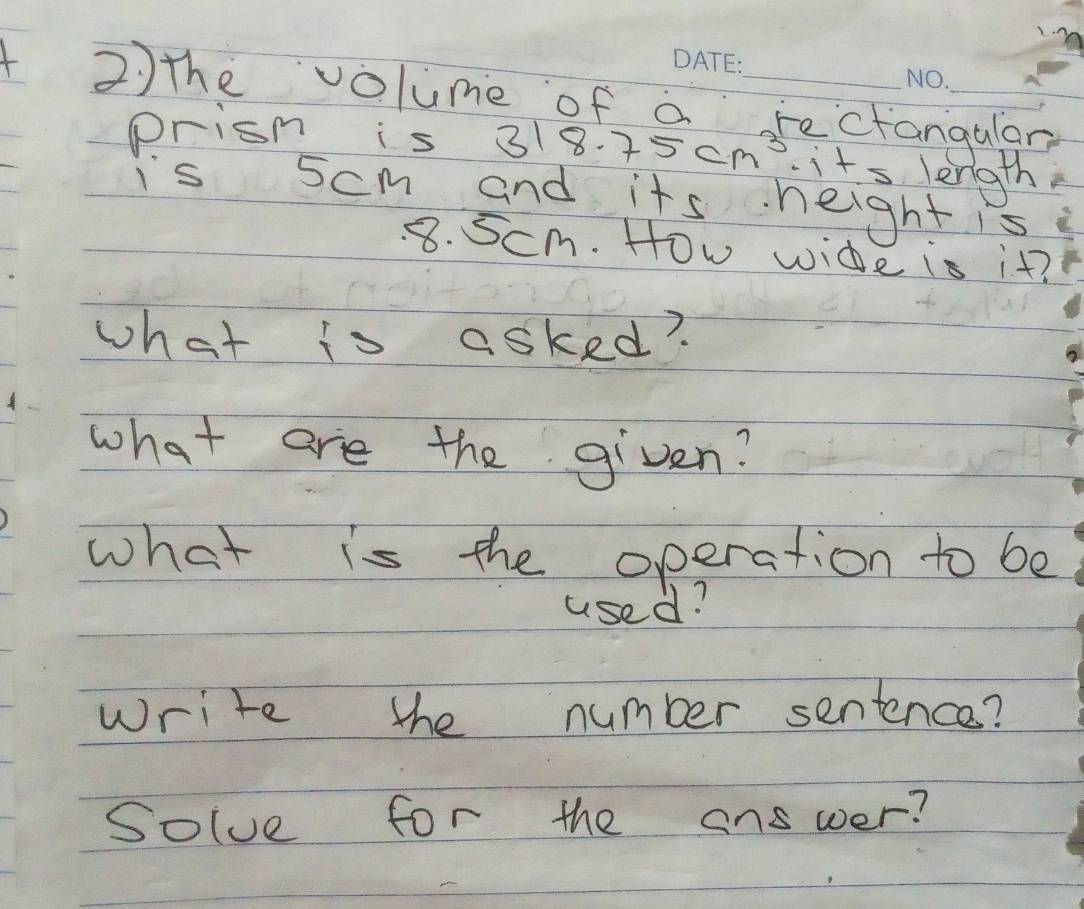 DATE: NO.
2.) The volume of a rectangular
prism is 318.75 cm³. its length
is 5cm and its height is
8.5cm. How wide is it?
what is asked?
what are the given?
what is the operation to be
used?
write the number sentence?
Solve for the answer?